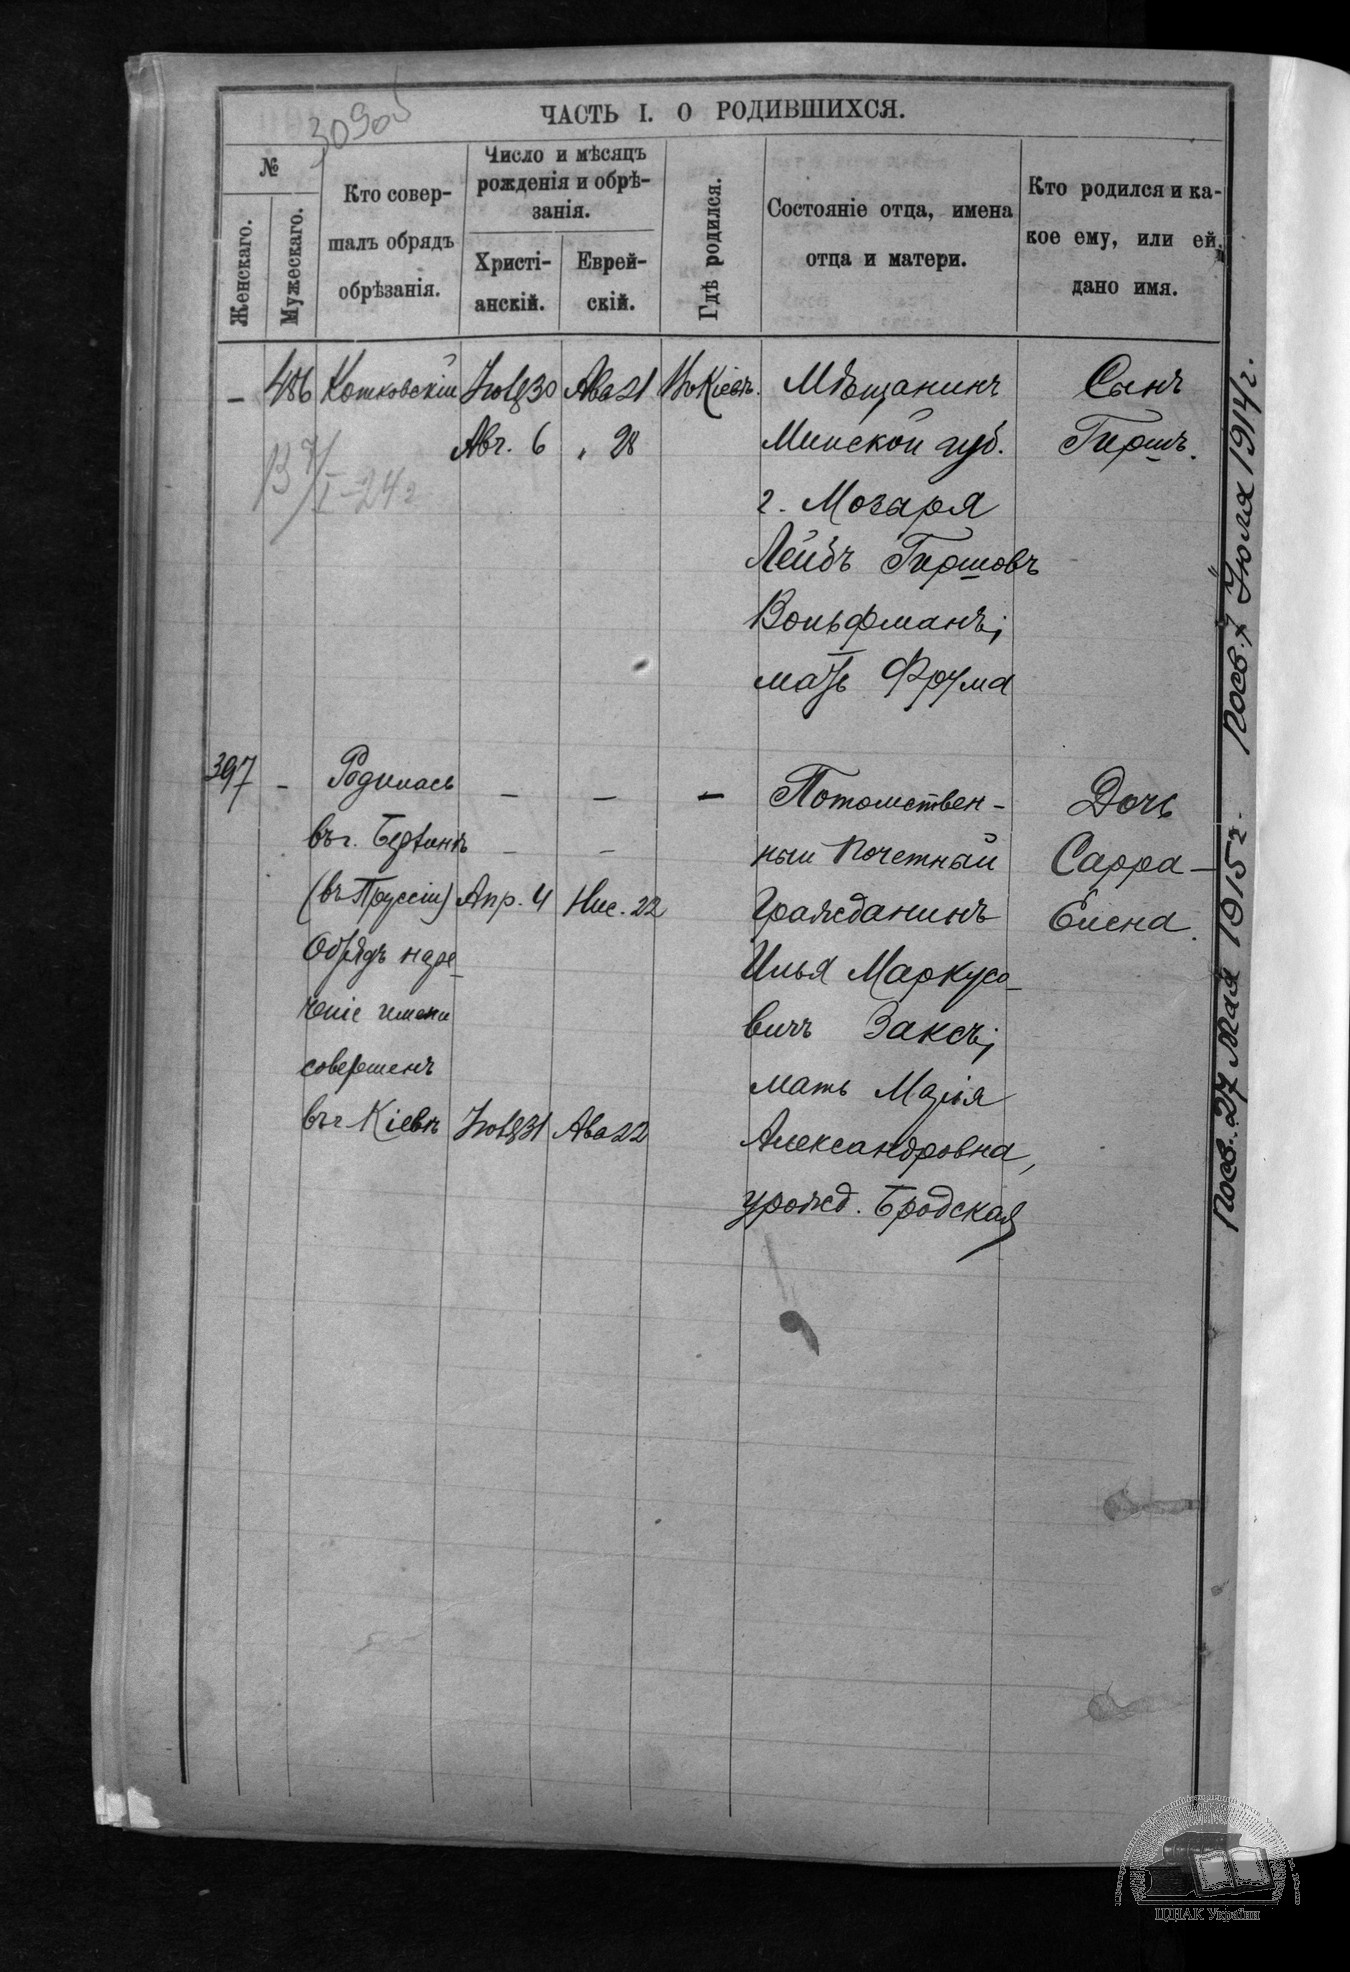 309об
ЧАСТЬ I. О РОДИВШИХСЯ.
№
Женскаго.
Мужескаго.
Кто совер-
шалъ обрядъ
обрѣзанія.
Число и мѣсяцъ
рожденія и обрѣ-
занія.
Христі-
анскій.
Еврей-
скій.
Гдѣ родился.
Состояніе отца, имена
отца и матери.
Кто родился и ка-
кое ему, или ей,
дано имя.
— 486 Котковскій Іюля 30 Ава 21 Въ Кіевѣ. Мѣщанинъ Сынъ
Авг. 6 " 28 Минской губ. Гиршъ.
г. Мозыря
Лейбъ Гиршовъ
Вольфманъ;
мать Фрума
397 — Родилась — — — Потомствен- Дочь
въ г. Берлинѣ — — ный Почетный Сарра-
(въ Пруссіи) Апр. 4 Нис. 22 Гражданинъ Елена.
Обрядъ наре- Илья Маркусо-
ченіе имени вичъ Заксъ;
совершенъ мать Марія
въ г. Кіевѣ Іюля 31 Ава 22 Александровна,
урожд. Бродская
Посв. 27 Мая 1915 г.
Посв. 7 Іюля 1914 г.
ЦДІАК України